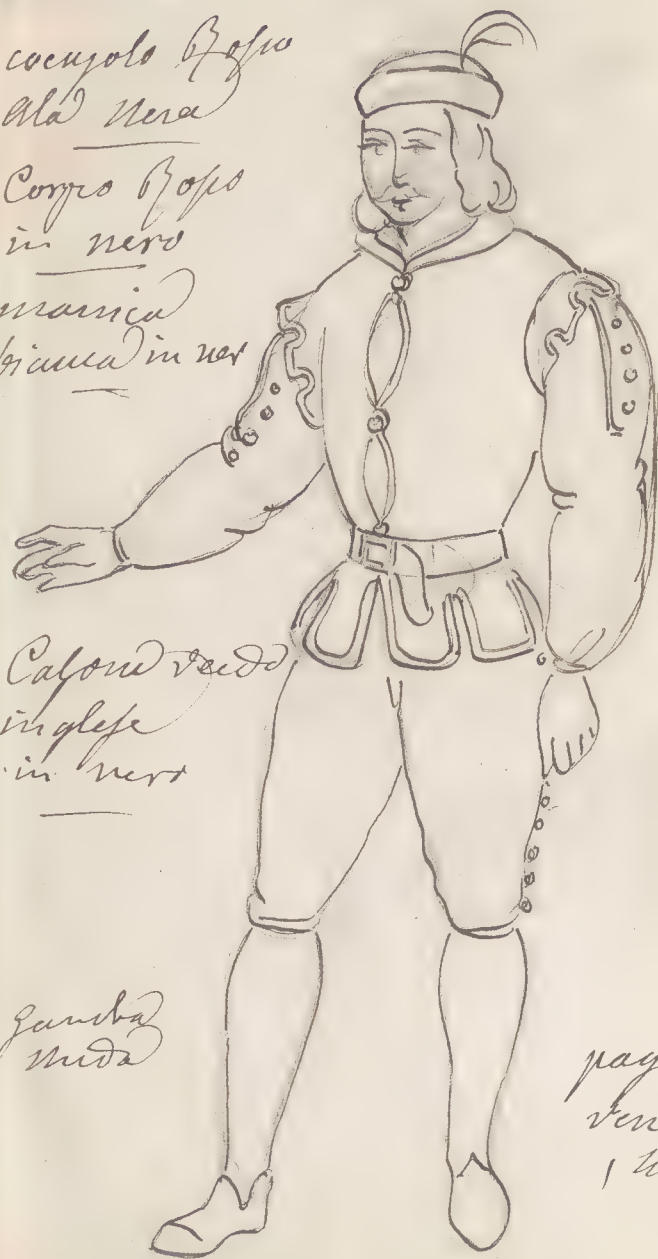 cocuzolo Rosso
Ala nera
Corpo Rosso
in nero
manica
bianca in ner
Calzone verde
inglese
in nero
gamba
nuda
pag
ver